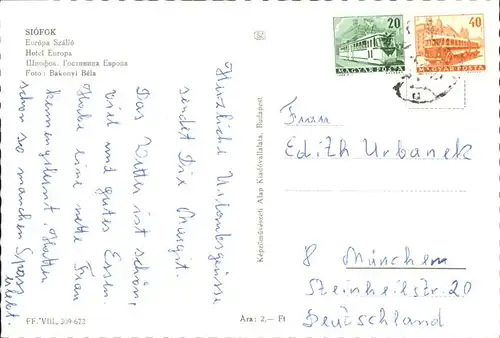 SIÓFOK
Európa Szálló
Hotel Europa
Шиофок. Гостиница Европа
Foto: Bakonyi Béla
20
MAGYAR POSTA
40
MAGYAR POSTA
Herzliche Urlaubsgrüsse
sendet Dir Margit.
Das Wetter ist schön,
viel und gutes Essen.
Habe eine nette Frau
kennengelernt. Hatten
schon so manchen Spass
erlebt.
Képzőművészeti Alap Kiadóvállalata, Budapest
Frau
Edith Urbanek
8 München
Steinheilstr. 20
Deutschland
FF. VIII. 309-672
Ára: 2,— Ft